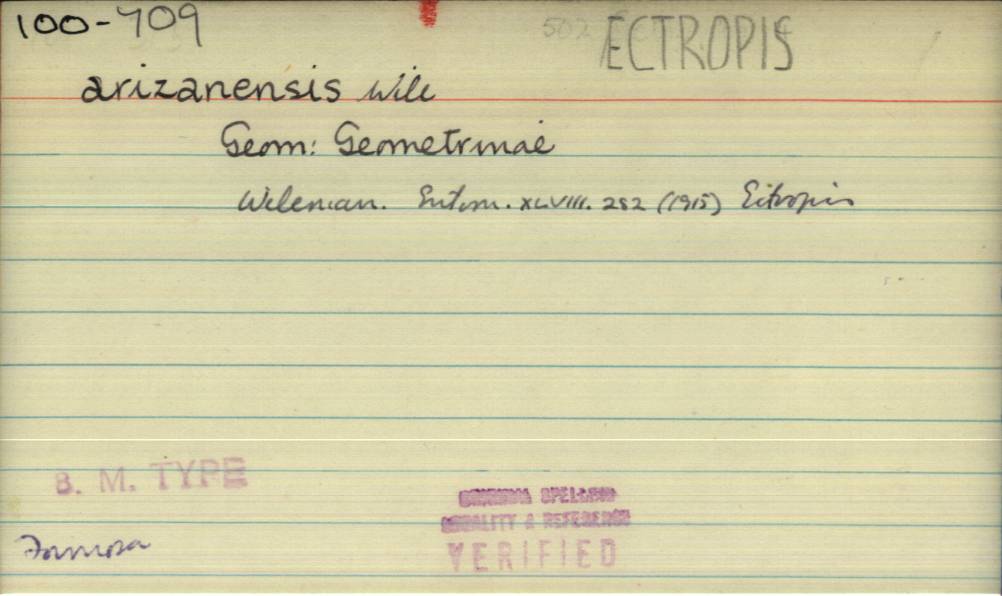 100-709
502 ECTROPIS
arizanensis Wile
Geom: Geometrinae
Wileman. Entom. XLVIII. 282 (1915) Ectropis
B. M. TYPE
ORIGINAL SPELLING
LOCALITY & REFERENCE
VERIFIED
Formosa